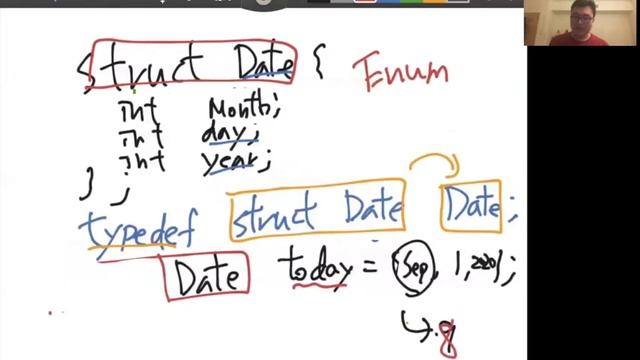 struct Date {
Enum
int Month;
int day;
int year;
} ;
typedef struct Date Date;
Date today = {Sep, 1,